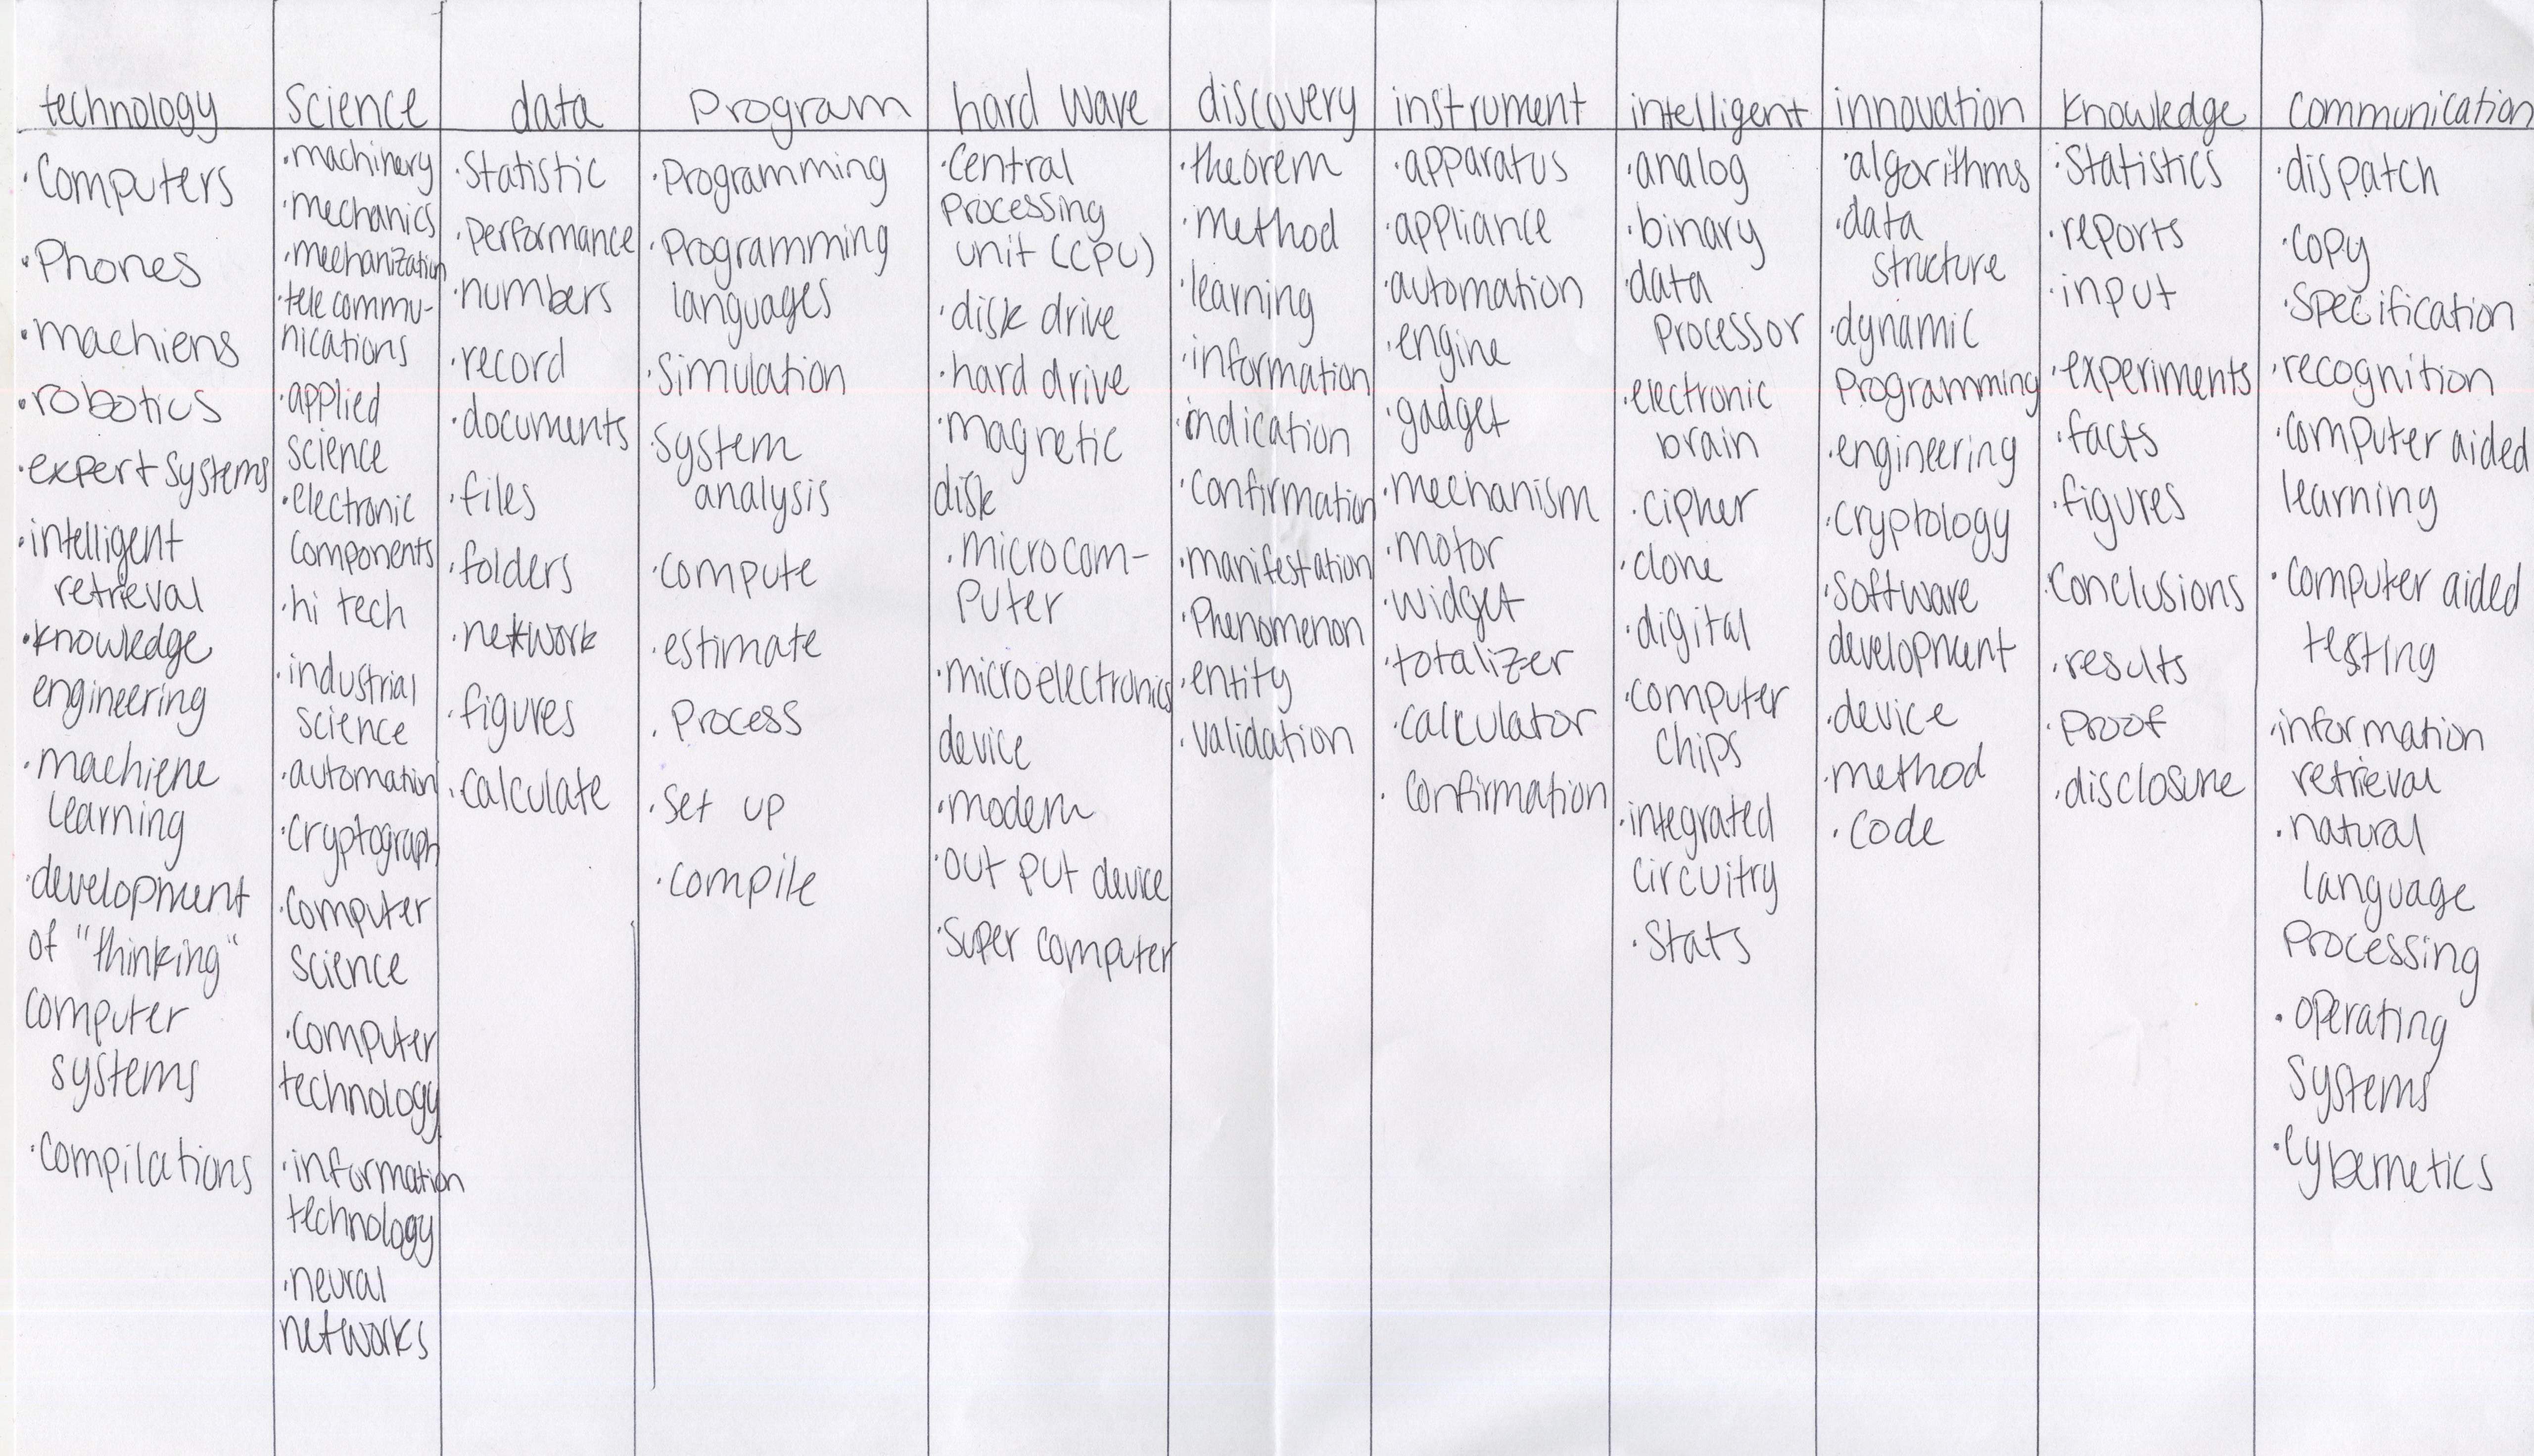 technology
Computers
Phones
machiens
robotics
expert systems
intelligent
retrieval
knowledge
engineering
machiene
learning
development
of "thinking"
computer
systems
compilations
Science
machinery
mechanics
mechanization
tele commu-
nications
applied
science
electronic
components
hi tech
industrial
science
automation
cryptograph
computer
science
computer
technology
information
technology
neural
networks
data
Statistic
performance
numbers
record
documents
files
folders
network
figures
calculate
Program
Programming
Programming
languages
simulation
system
analysis
compute
estimate
Process
set up
compile
hard Wave
Central
Processing
unit (CPU)
disk drive
hard drive
magnetic
disk
microcom-
puter
microelectronics
device
modem
out put device
Super computer
discovery
theorem
method
learning
information
indication
confirmation
manifestation
Phenomenon
entity
validation
instrument
apparatus
appliance
automation
engine
gadget
mechanism
motor
widget
totalizer
calculator
confirmation
intelligent
analog
binary
data
Processor
electronic
brain
cipher
clone
digital
computer
chips
integrated
circuitry
Stats
innovation
algorithms
data
structure
dynamic
Programming
engineering
cryptology
software
development
device
method
code
Knowledge
Statistics
reports
input
experiments
facts
figures
conclusions
results
proof
disclosure
Communication
dispatch
copy
Specification
recognition
computer aided
learning
computer aided
testing
information
retrieval
natural
language
Processing
operating
systems
cybernetics